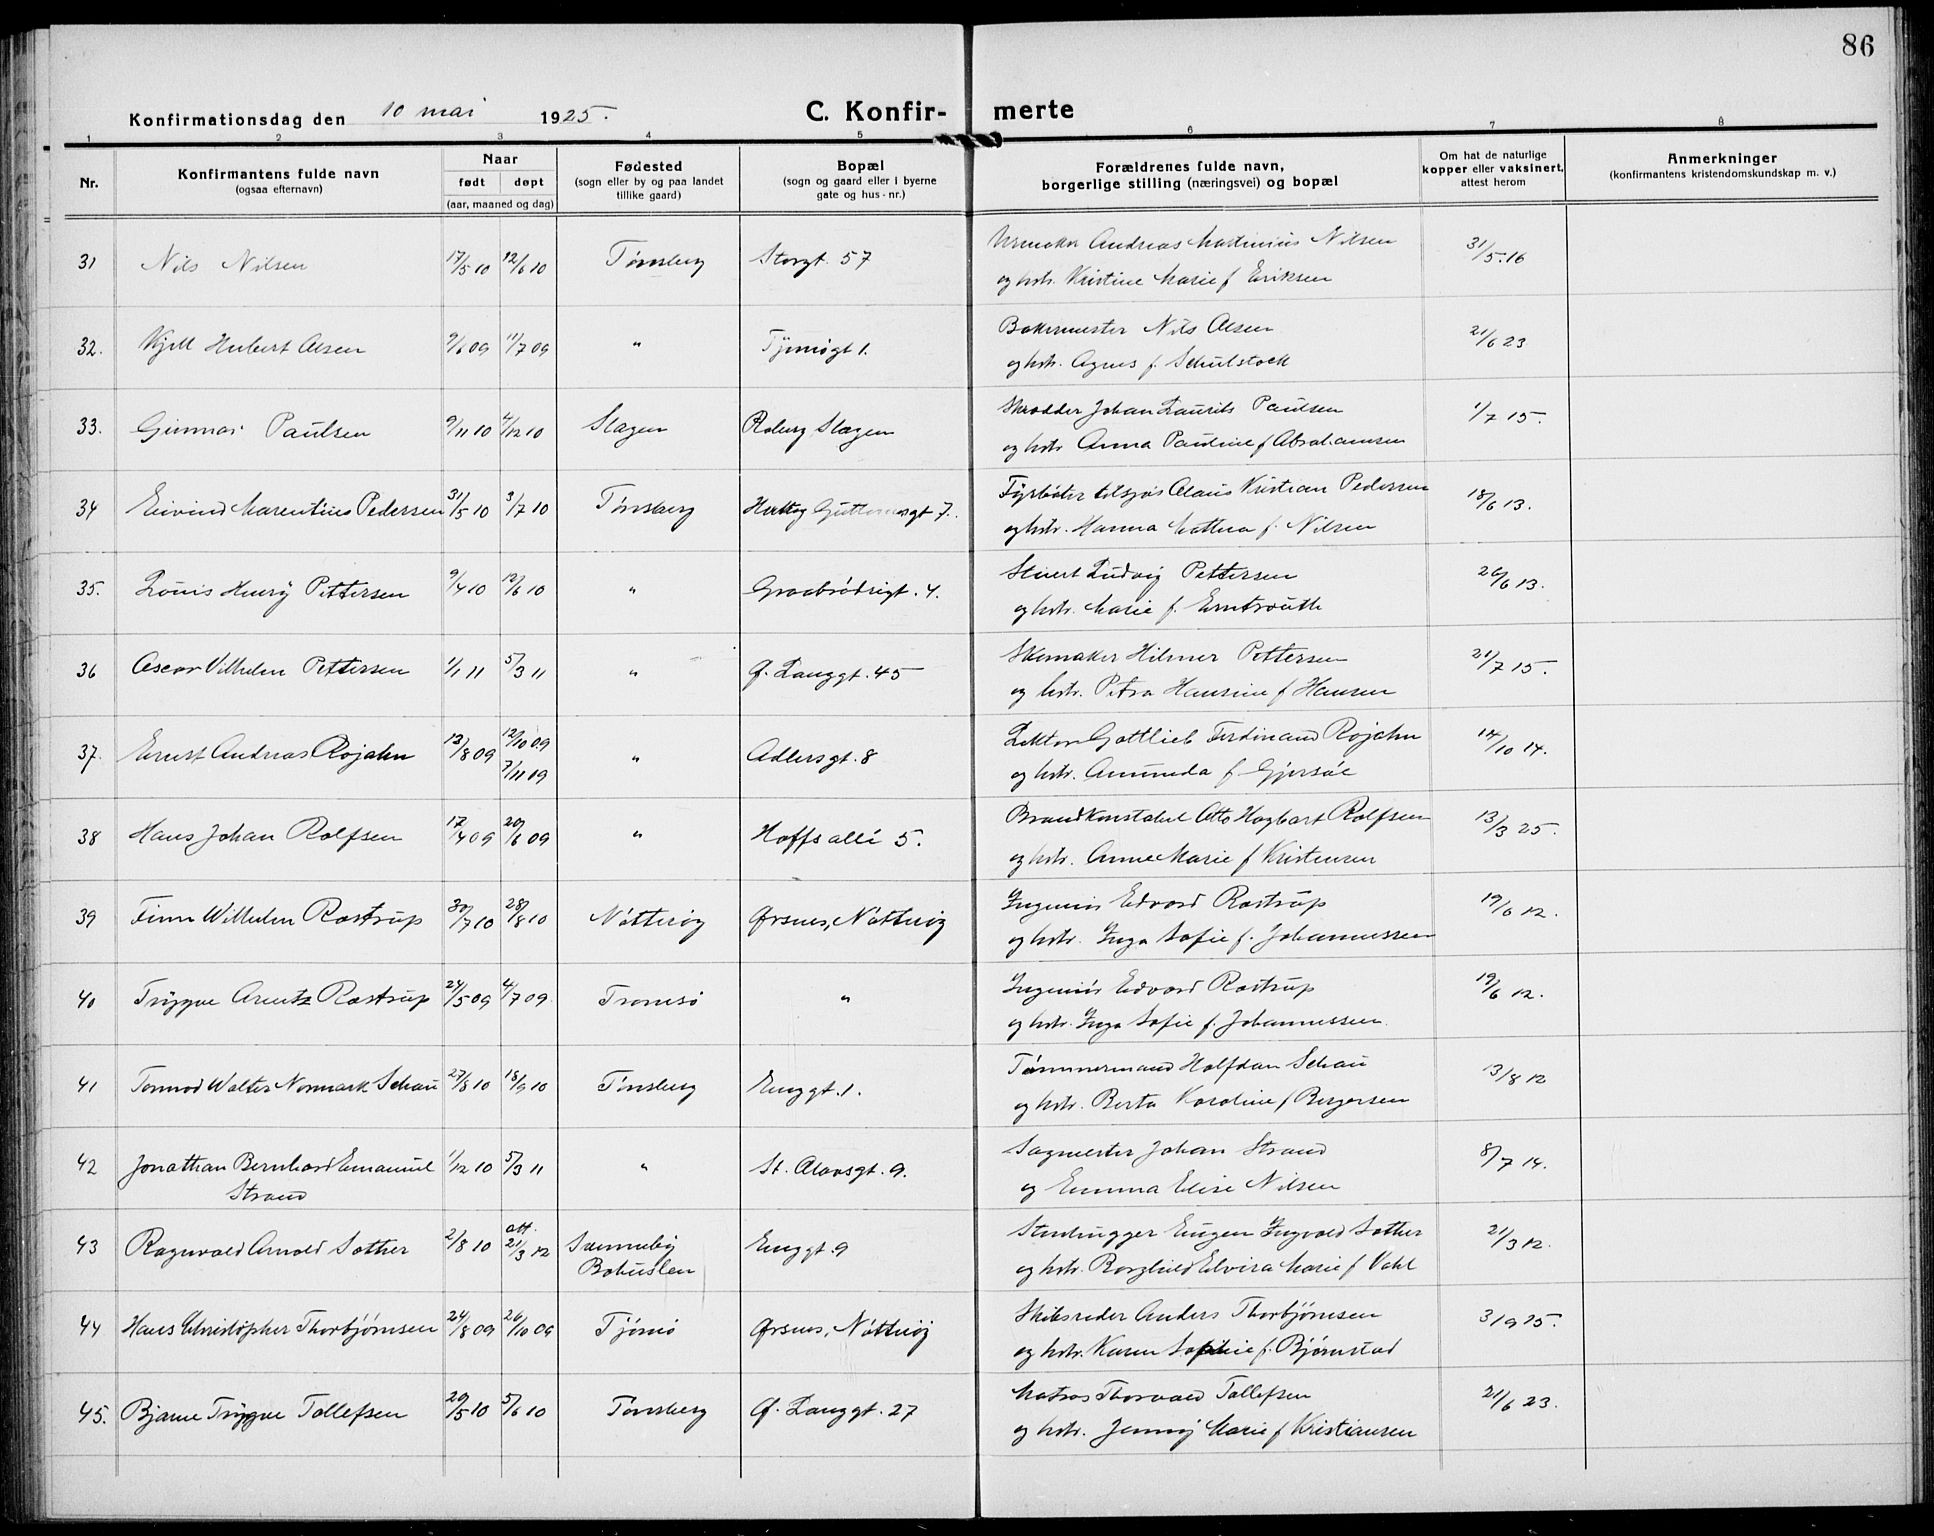 86
Konfirmationsdag den 10 mai 1925.
C. Konfir- merte
1 2 3 4 5 6 7 8
Nr.
Konfirmantens fulde navn
(ogsaa efternavn)
Naar
født døpt
(aar, maaned og dag)
Fødested
(sogn eller by og paa landet
tillike gaard)
Bopæl
(sogn og gaard eller i byerne
gate og hus-nr.)
Forældrenes fulde navn,
borgerlige stilling (næringsvei) og bopæl
Om hat de naturlige
kopper eller vaksinert,
attest herom
Anmerkninger
(konfirmantens kristendomskundskap m. v.)
31 Nils Nilsen 17/5 10 12/6 10 Tønsberg Storgt. 57 Urmaker Andreas Martinius Nilsen 31/5.16
og hstr. Kristine Marie f Eriksen
32. Kjell Hubert Olsen 9/6 09 11/7 09 " Tjømøgt 1. Bakermester Nils Olsen 21/6 23
og hstr. Agnes f. Schulstock
33. Gunnar Paulsen 9/11 10 4/12 10 Slagen Roberg Slagen Skrædder Johan Laurits Paulsen 1/7 15.
og hstr Anna Pauline f Abrahamsen
34 Eivind Marentius Pedersen 31/5 10 3/7 10 Tønsberg Hertug Guttormsgt 7. Fyrbøter tilsjøs Olaus Kristian Pedersen 18/6 13.
og hstr. Hanna Mathea f. Nilsen
35. Louis Henry Pettersen 9/4 10 12/6 10 " Graabrødregt. 4. Stuert Ludvig Pettersen 26/6 13.
og hstr. Marie f. Erntrouth
36 Oscar Vilhelm Pettersen 1/1 11 5/3 11 " Ø. Langgt. 45 Skomaker Hilmer Pettersen 21/7 15.
og hstr. Petra Hansine f Hansen
37. Ernst Andreas Rojahn 13/8 09 12/10 09 " Adlersgt. 8 Lektor Gottlieb Ferdinand Rojahn 14/10 14.
7/11 09 og hstr. Amunda f. Gjersøe
38 Hans Johan Rolfsen 17/4 09 20/6 09 " Hoffs allé 5. Brandkonstabel Otto Hagbart Rolfsen 13/3 25.
og hstr. Anne Marie f Kristensen
39 Finn Wilhelm Rostrup 30/7 10 28/8 10 Nøtterøy Ørsnes, Nøtterøy Ingeniør Edvard Rostrup 19/6 12.
og hstr. Inga Sofie f. Johannessen
40 Trygve Arentz Rostrup 24/5 09 4/7 09. Tromsø " Ingeniør Edvard Rostrup 19/6 12.
og hstr. Inga Sofie f. Johannessen.
41 Tormod Walter Normark Schau 27/8 10 18/9 10 Tønsberg Enggt. 1. Tømmermand Halfdan Schau 13/8 12
og hstr. Berta Karoline f Bergersen
42 Jonathan Bernhard Emanuel 1/12 10 5/3 11 " St. Olavsgt. 9. Sagmester Johan Strand 8/7 14.
Strand og Emma Elise Nilsen
43 Ragnvald Arnold Sother 2/8 10 att. 21/3 12 Sanneby Enggt. 9 Stenhugger Eugen Ingvald Sother 21/3 12.
Bohuslen og hstr. Borghild Elvira Marie f Vahl
44 Hans Christopher Thorbjørnsen 24/8 09 26/10 09 Tjømø Ørsnes, Nøtterøy Skibsreder Anders Thorbjørnsen 3/9 25.
og hstr. Karen Sophie f. Bjørnstad
45. Bjarne Trygve Tollefsen 20/5 10 5/6 10 Tønsberg Ø. Langgt. 27 Matros Thorvald Tollefsen 21/6 23.
og hstr. Jenny Marie f Kristiansen